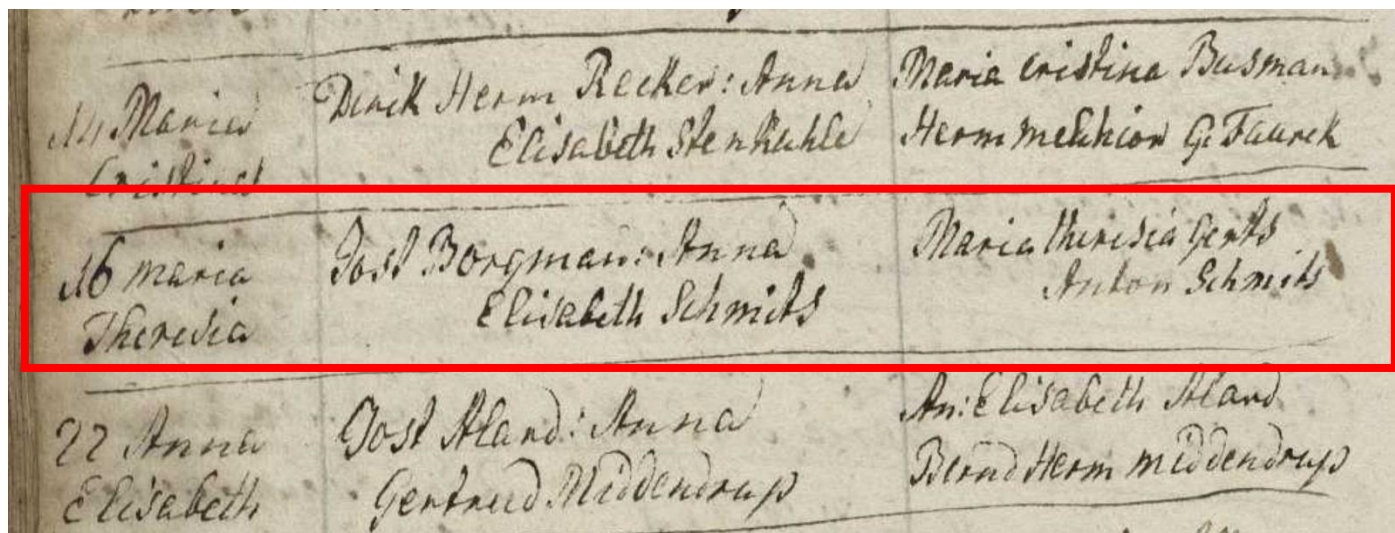 14 Maria
Cristina
Dirik Herm Recker: Anna
Elisabeth Stenkuhle
Maria Cristina Busman
Herm Melchior G. Taurek
16 maria
Theresia
Jost Borgman: Anna
Elisabeth Schmits
Maria theresia Gerts
Anton Schmits
22 Anna
Elisabeth
Jost Aland: Anna
Gertrud Middendrup
An: Elisabeth Aland
Bernd Herm middendrup